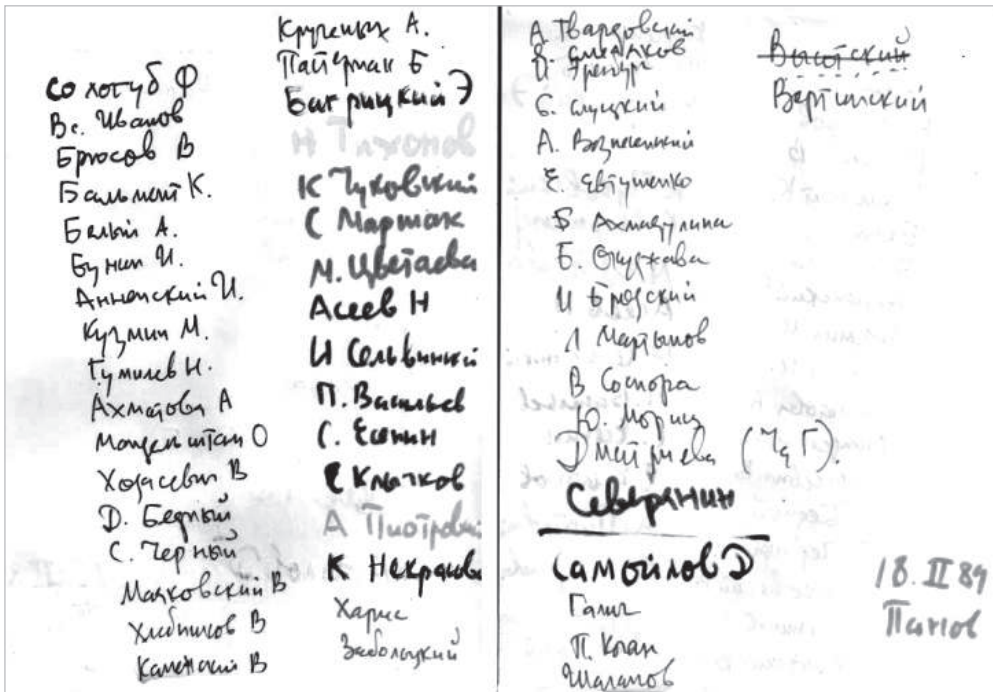 Сологуб Ф
Вс. Иванов
Брюсов В
Бальмонт К.
Белый А.
Бунин И.
Анненский И.
Кузмин М.
Гумилев Н.
Ахматова А
Мандельштам О
Ходасевич В
Д. Бедный
С. Черный
Маяковский В
Хлебников В
Каменский В
Крученых А.
Пастернак Б
Багрицкий Э
Тихонов Н
К Чуковский
С Маршак
М. Цветаева
Асеев Н
И Сельвинский
П. Васильев
С. Есенин
С Клычков
А Пиотровс
К Некрасова
Хармс
Заболоцкий
А. Твардовский
Я. Смеляков
И Эренбург
Б. Слуцкий
А. Вознесенский
Е. Евтушенко
Б Ахмадулина
Б. Окуджава
И Бродский
Л Мартынов
В Соснора
Ю. Мориц
Дмитриева (Ч д Г).
Северянин
Самойлов Д
Галич
П. Коган
Шаламов
Высотский
Вертинский
18. II 89
Панов